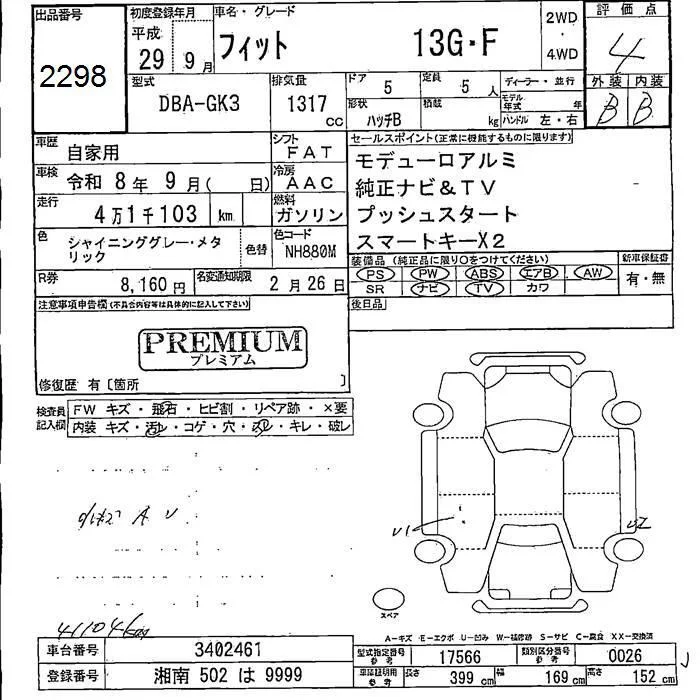 出品番号
2298
初度登録年月
平成
29 9月
車名・グレード
フィット 13G・F
2WD
・
4WD
評価点
4
型式
DBA-GK3
排気量
1317 cc
ドア 5
定員 5 人
形状 ハッチB
積載 kg
ディーラー・並行
モデル年式 年
ハンドル 左・右
外装 内装
B B
車歴 自家用
シフト FAT
車検 令和 8年 9月( 日)
冷房 AAC
走行 4万1千103 km
燃料 ガソリン
色 シャイニンググレー・メタリック
色替
色コード NH880M
R券 8,160円
名変通知期限 2月26日
セールスポイント(正常に機能するものに限ります)
モデューロアルミ
純正ナビ&TV
プッシュスタート
スマートキーX2
装備品(純正品に限り○をつけてください)
PS PW ABS エアB AW
SR ナビ TV カワ
新車保証書
有・無
後日品
注意事項申告欄(不具合内容等は具体的に記入して下さい)
PREMIUM
プレミアム
修復歴 有〔箇所 〕
検査員記入欄
FW キズ・飛石・ヒビ割・リペア跡・×要
内装 キズ・汚レ・コゲ・穴・スレ・キレ・破レ
A U
U1
U2
スペア
41104km
A-キズ E-エクボ U-凹み W-補修跡 S-サビ C-腐食 XX-交換済
車台番号 3402461
登録番号 湘南 502 は 9999
型式指定番号 参考 17566
類別区分番号 参考 0026
車庫証明用 参考 長さ 399 cm 幅 169 cm 高さ 152 cm